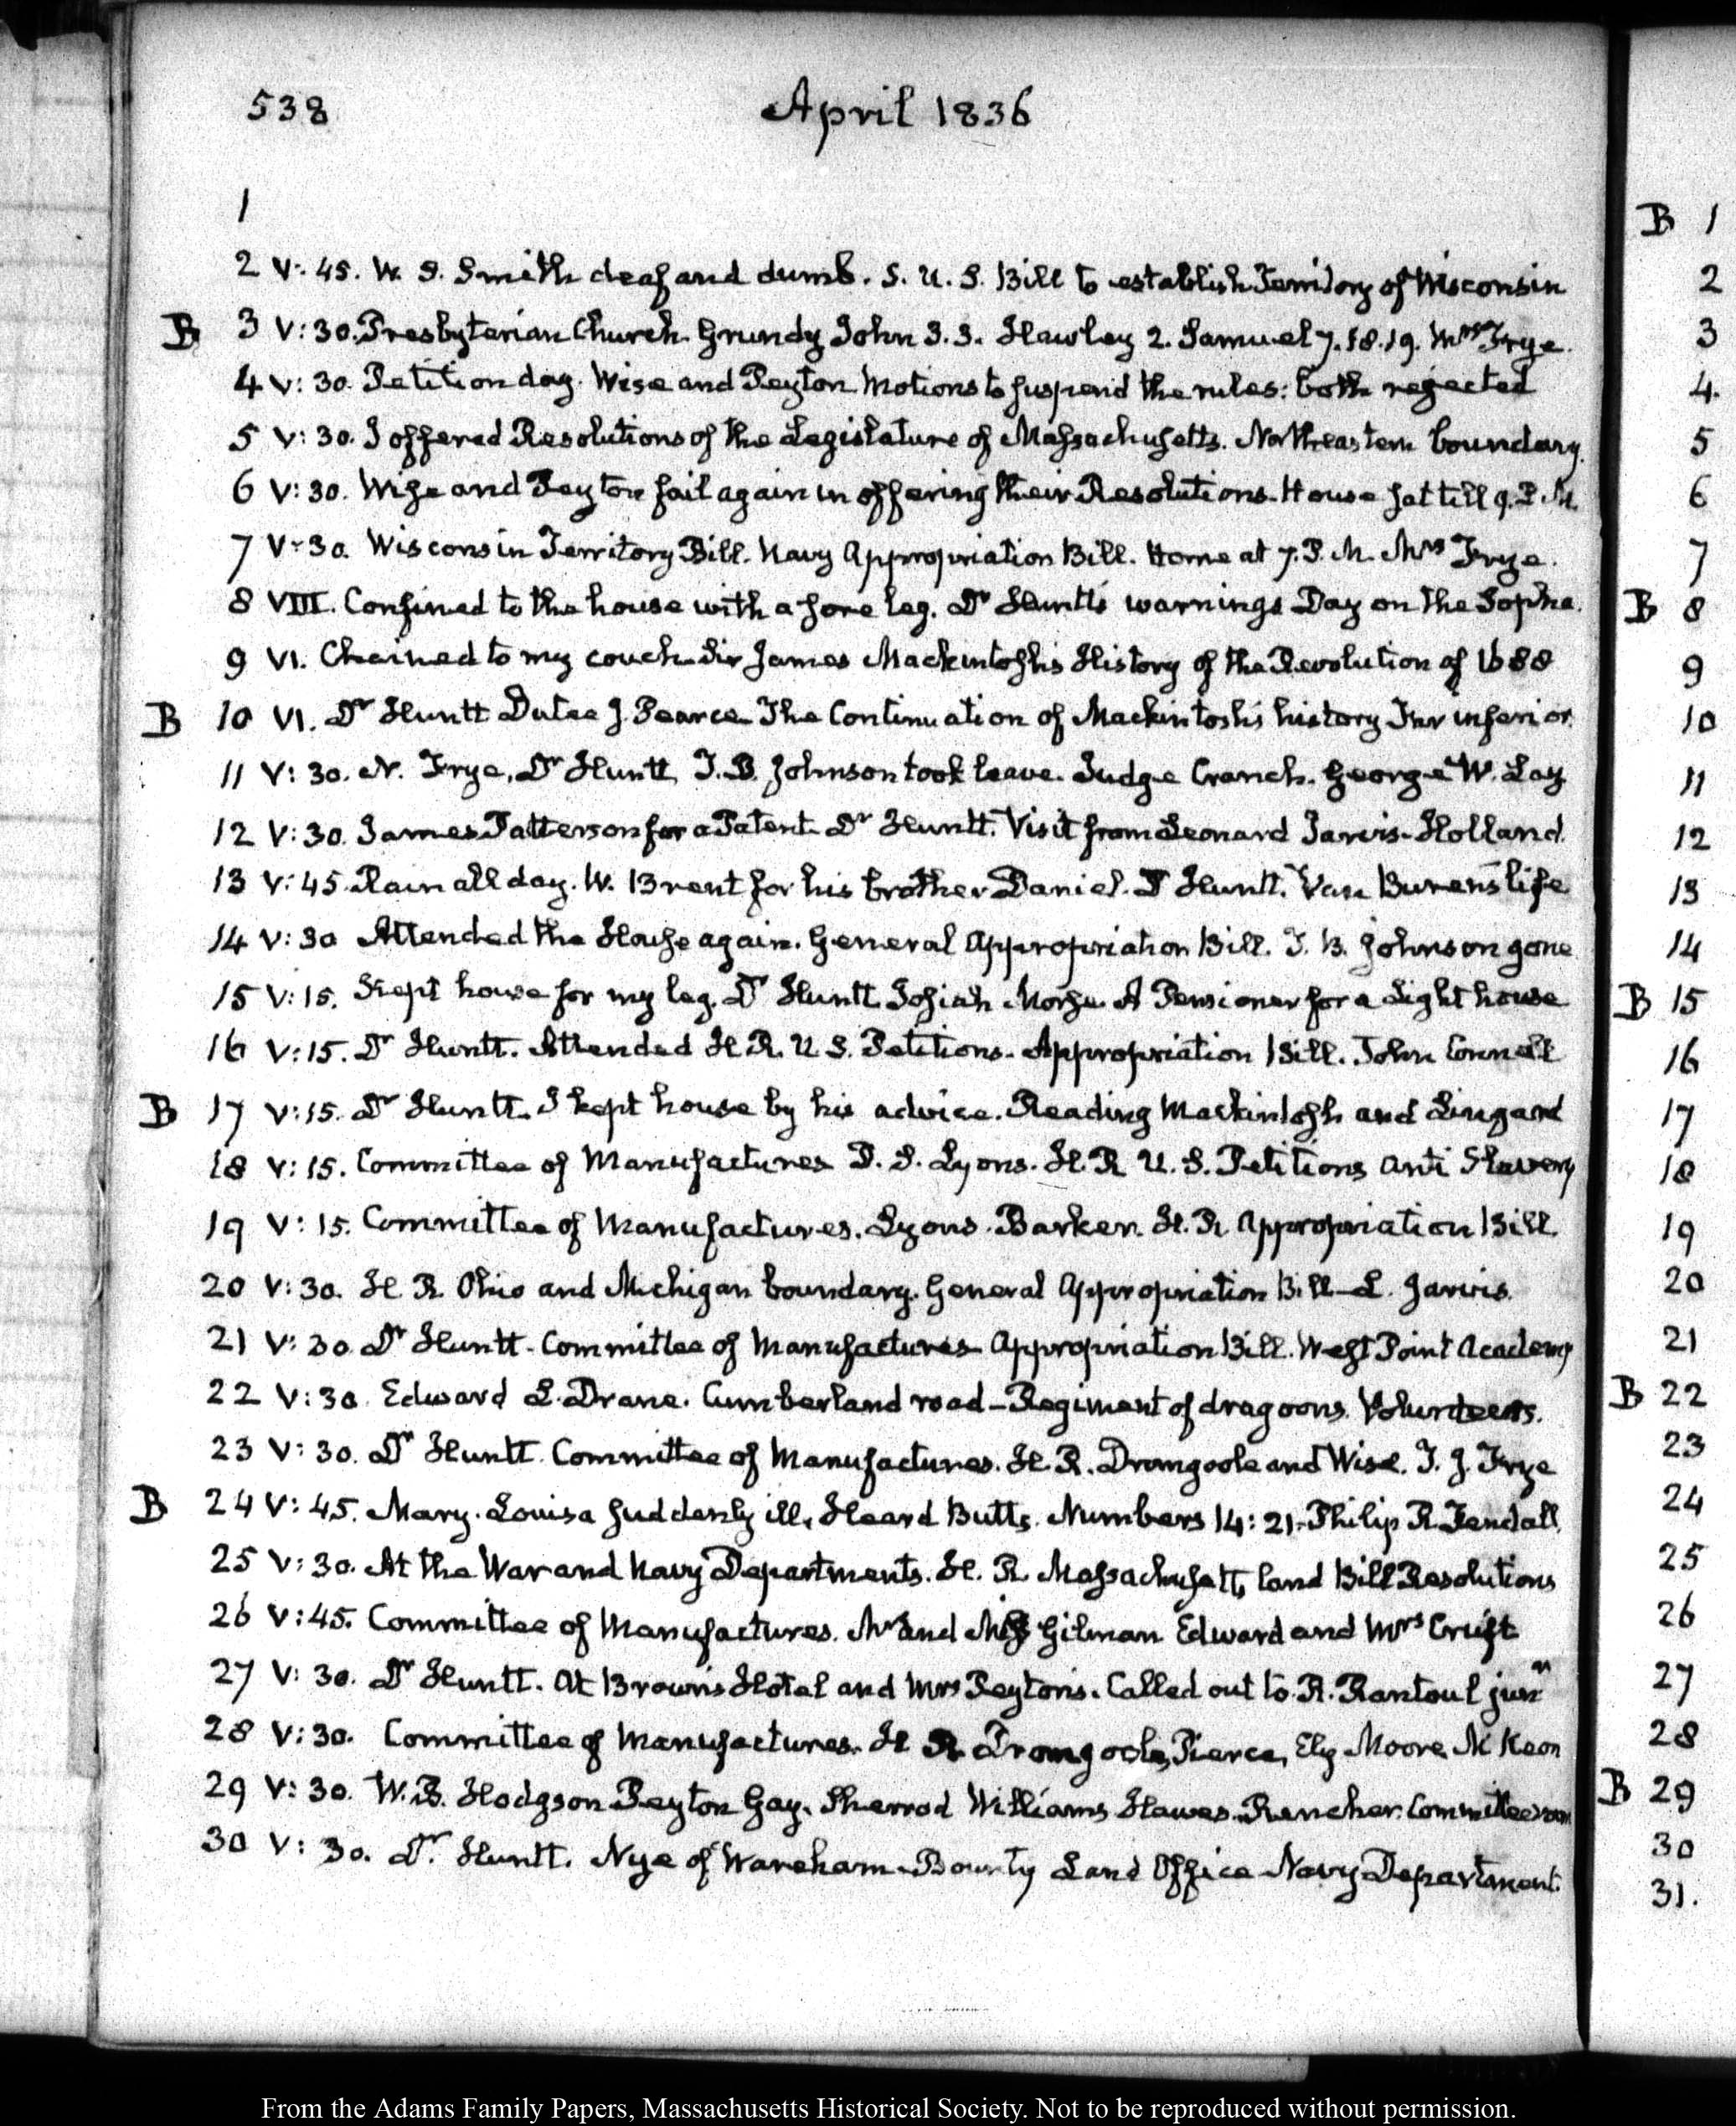 538 April 1836
1
2 V: 45. W. S. Smith deaf and dumb. S. U. S. Bill to establish Territory of Wisconsin
B 3 V: 30. Presbyterian Church. Grundy John 3. 3. Hawley 2. Samuel 7. 18. 19. Mrs Frye.
4 V: 30. Petition day. Wise and Peyton Motions to suspend the rules: both rejected
5 V: 30. I offered Resolutions of the Legislature of Massachusetts. Northeastern boundary.
6 V: 30. Wise and Peyton fail again in offering their Resolutions. House sat till 9. P. M.
7 V: 30. Wisconsin Territory Bill. Navy Appropriation Bill. Home at 7. P. M. Mrs Frye.
8 VIII. Confined to the house with a sore leg. Dr Huntt's warnings Day on the Sopha.
9 VI. Chained to my couch. Sir James Mackintosh's History of the Revolution of 1688
B 10 VI. Dr Huntt Dutee J. Pearce The Continuation of Mackintosh's history inferior.
11 V: 30. N. Frye, Dr Huntt, T. B. Johnson took leave. Judge Cranch. George W. Lay
12 V: 30. James Patterson for a Patent. Dr Huntt. Visit from Leonard Jarvis. Holland.
13 V: 45. Rain all day. W. Brent for his brother Daniel. D Huntt. Van Buren's life
14 V: 30 Attended the House again. General Appropriation Bill. T. B. Johnson gone
15 V: 15. Kept house for my leg. Dr Huntt. Josiah Morse. A Pensioner for a Light house
16 V: 15. Dr Huntt. Attended H. R. U. S. Petitions. Appropriation Bill. John Connell
B 17 V: 15. Dr Huntt. I kept house by his advice. Reading Mackintosh and Lingard
18 V: 15. Committee of Manufactures D. S. Lyons. H. R U. S. Petitions anti Slavery
19 V: 15. Committee of Manufactures. Lyons. Barker. H. R. Appropriation Bill.
20 V: 30. H. R. Ohio and Michigan boundary. General Appropriation Bill—L. Jarvis.
21 V: 30. Dr Huntt. Committee of Manufactures Appropriation Bill. West Point Academy
22 V: 30. Edward L. Drane. Cumberland road—Regiment of dragoons. Volunteers.
23 V: 30. Dr Huntt. Committee of Manufactures. H. R. Dromgoole and Wise. T. J. Frye
B 24 V: 45. Mary. Louisa suddenly ill. Heard Butts. Numbers 14: 21. Philip R. Fendall
25 V: 30. At the War and Navy Departments. H. R. Massachusetts land Bill Resolutions
26 V: 45. Committee of Manufactures. Mr and Miss Gilman Edward and Mrs Cruft
27 V: 30. Dr Huntt. At Brown's Hotel and Mrs Peyton's. Called out to R. Rantoul junr
28 V: 30. Committee of Manufactures. H R Dromgoole, Pierce, Ely Moore, McKeon
29 V: 30. W. B. Hodgson Peyton Gay. Sherrod Williams Hawes. Rencher. Committee room
30 V: 30. Dr. Huntt. Nye of Wareham. Bounty Land Office Navy Department.
B 1
2
3
4.
5
6
7
B 8
9
10
11
12
13
14
B 15
16
17
18
19
20
21
B 22
23
24
25
26
27
28
B 29
30
31.
From the Adams Family Papers, Massachusetts Historical Society. Not to be reproduced without permission.